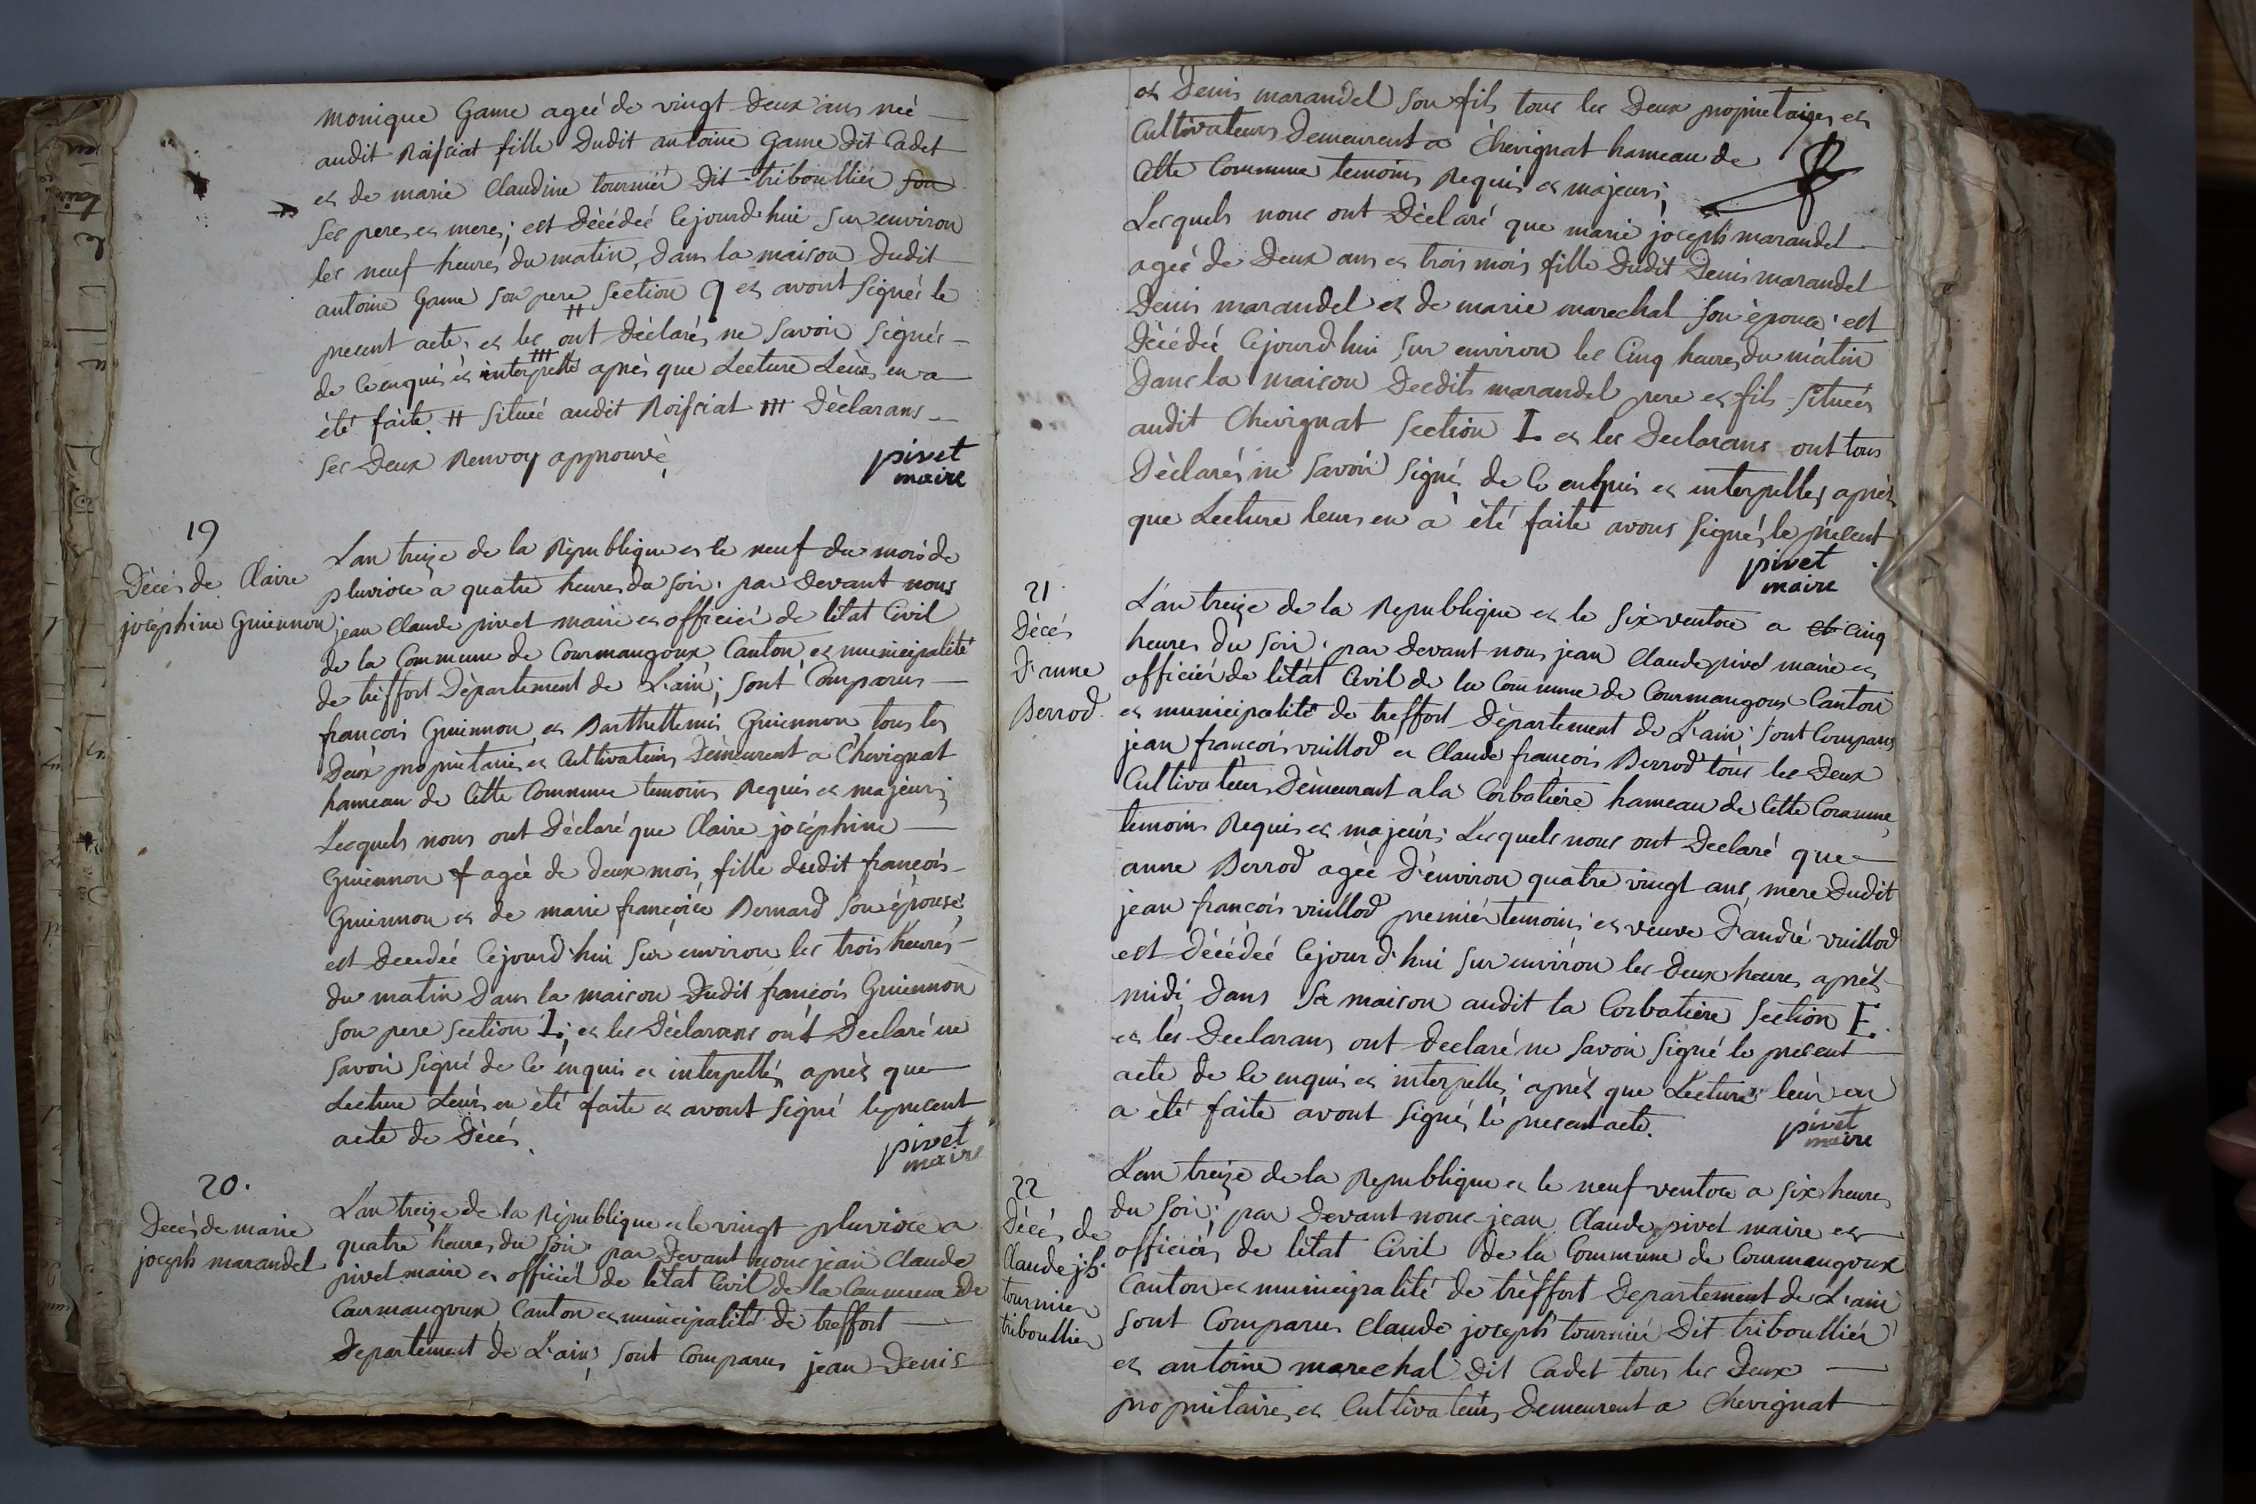 monique Game ageé de vingt deux ans neé
audit Roissiat fille dudit antoine Game dit Cadet
et de marie Claudine tournier dit triboullier son
ses peres et meres; est décédeé cejourd'hui sur environ
les neuf heures du matin, dans la maison dudit
antoine Game son pere section q et avont signés le
present acte, et les ont déclarés ne savoir signés
de ce enquis et interpellés après que Lecture Leurs en a
été faite. H situeé audit Roissiat HI Déclarans
ses deux Renvoy approuvé
pivet
maire
19
Décès de Claire
joséphine Guiennon
L'an treize de la République et le neuf du mois de
pluviose a quatre heures du soir. par devant nous
jean Claude pivet maire et officier de l'état Civil
de la Commune de Courmangoux Canton et municipalité
de treffort Département de L'ain; sont Comparus
françois Guiennon, et Barthellemis Guiennon, tous les
Deux propriétaires et Cultivateurs Demeurent a Chevignat
hameau de Cette Commune temoins Requis et majeurs;
Lesquels nous ont Déclaré que Claire joséphine
Guiennon ageé de deux mois, fille dudit françois
Guiennon et de marie françoise Bernard son épouse,
est Decedeé Cejourd'hui sur environ les trois heures
du matin dans la maison dudit françois Guiennon
son pere section I; et les Déclarans ont Declaré ne
savoir signé de Ce enquis et interpellés, après que
Lecture Leurs en été faite et avont signé le present
acte de Décés.
pivet
maire
20.
Decès de marie
joseph marandel
L'an treize de la République et le vingt pluviose a
quatre heures du soir par devant nous jean Claude
pivet maire et officier de l'état Civil de la Commune de
Courmangoux, Canton et municipalité de treffort
Departement de L'ain; sont Comparus jean Denis
et Denis marandel son fils tous les Deux propriétaires et
Cultivateurs Demeurent a Chevignat hameau de
Cette Commune temoins Requis et majeurs;
Lesquels nous ont Déclaré que marie joseph marandel
ageé de Deux ans et trois mois fille dudit Denis marandel
Denis marandel et de marie marechal son épouse; est
Décédeé Cejourd'hui sur environ les Cinq heures du matin
Dans la maison Desdits marandel pere et fils situeés
audit Chevignat section I. et les Declarans ont tous
Déclarés ne savoir signés de Ce enquis et interpellés après
que Lecture leurs en a été faite avons signés le présent
pivet
maire
21.
Décés
d'anne
Berrod.
L'an treize de la Republique et le six ventose a Cinq
heures du soir. par devant nous jean Claude pivet maire et
officier de l'état Civil de la Commune de Courmangoux Canton
et municipalité de treffort Département de L'ain; sont Comparus
jean françois vuillod et Claude françois Berrod tous les Deux
Cultivateurs Démeurant a la Corbatiere hameau de Cette Commune,
temoins Requis et majeurs; Lesquels nous ont Declaré que
anne Berrod ageé D'environ quatre vingt ans, mere dudit
jean françois vuillod premier temoins et veuve D'andré vuillod
est Décédeé Cejourd'hui sur environ les Deux heures après
midi, dans sa maison audit la Corbatiere section E.
et les Declarans ont declaré ne savoir signé le present
acte de Ce enquis et interpellés; après que Lecture leur en
a été faite avont signés le present acte.
pivet
maire
22
Décés de
Claude jh.
tournier
triboullier
L'an treize de la Republique et le neuf ventose a six heures
du soir; par devant nous jean Claude pivet maire et
officiers de l'état Civil de la Commune de Courmangoux
Canton et municipalité de treffort Departement de L'ain
sont Comparus Claude joseph tournier Dit triboullier
et antoine marechal dit Cadet tous les Deux
propriétaires et Cultivateurs Demeurent a Chevignat